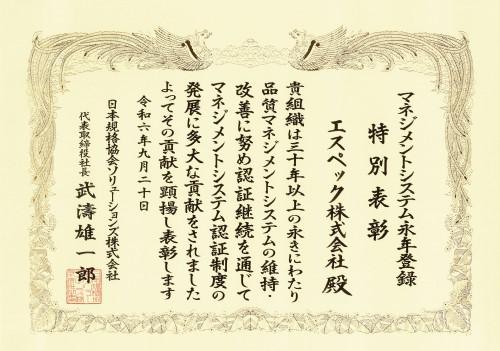 マネジメントシステム永年登録
特別表彰
エスペック株式会社 殿
貴組織は三十年以上の永きにわたり
品質マネジメントシステムの維持・
改善に努め認証継続を通じて
マネジメントシステム認証制度の
発展に多大な貢献をされました
よってその貢献を顕揚し表彰します
令和六年九月二十日
日本規格協会ソリューションズ株式会社
代表取締役社長 武濤雄一郎